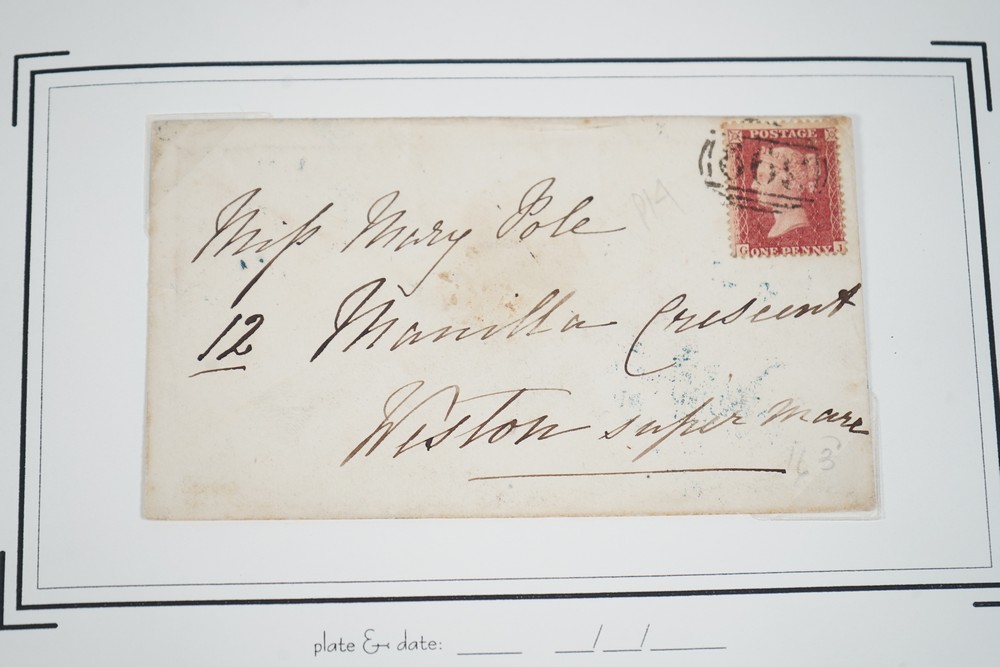 POSTAGE
G ONE PENNY J
Miss Mary Pole
12 Manilla Crescent
Weston super Mare
plate & date: ____ __/__/____